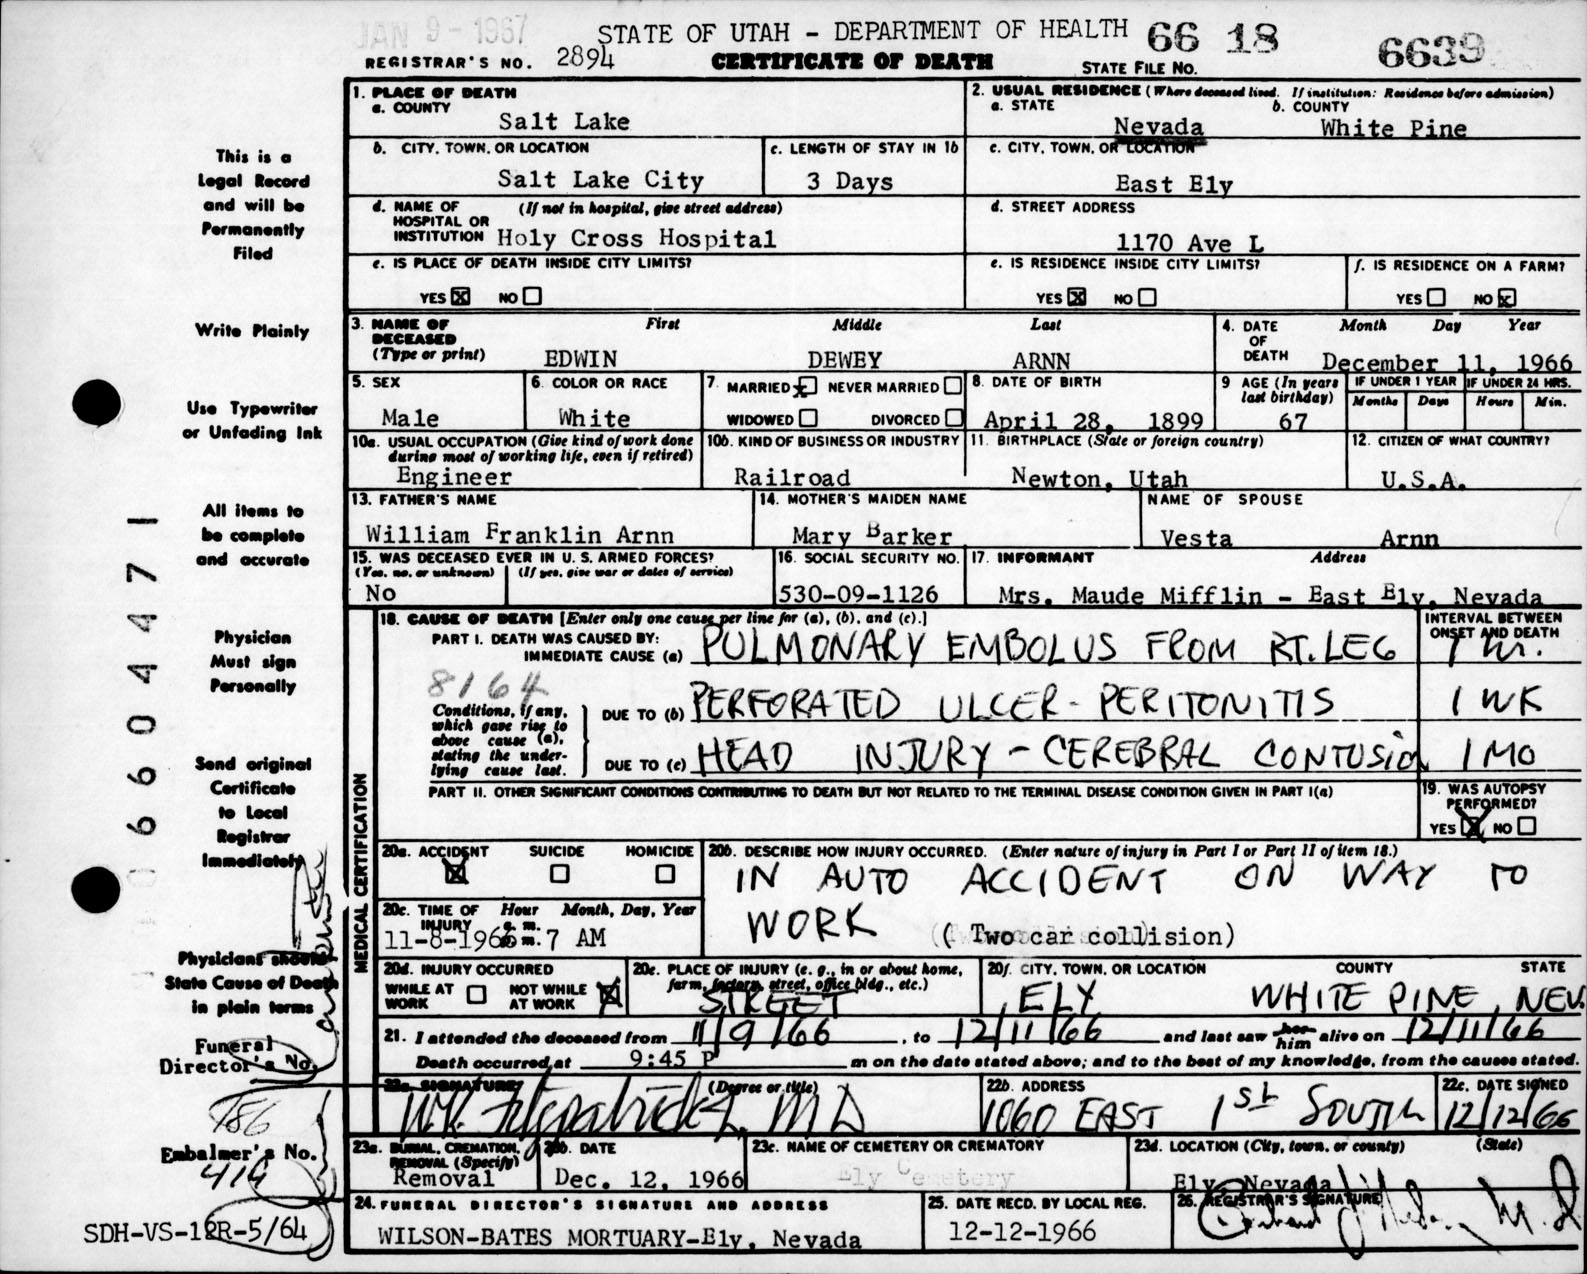 JAN 9 - 1967
STATE OF UTAH - DEPARTMENT OF HEALTH 66 18 6639
REGISTRAR'S NO. 2894 CERTIFICATE OF DEATH STATE FILE NO.
1. PLACE OF DEATH
a. COUNTY
Salt Lake
2. USUAL RESIDENCE (Where deceased lived. If institution: Residence before admission)
a. STATE b. COUNTY
Nevada White Pine
b. CITY, TOWN, OR LOCATION
Salt Lake City
c. LENGTH OF STAY IN 1b
3 Days
c. CITY, TOWN, OR LOCATION
East Ely
d. NAME OF (If not in hospital, give street address)
HOSPITAL OR
INSTITUTION Holy Cross Hospital
d. STREET ADDRESS
1170 Ave L
e. IS PLACE OF DEATH INSIDE CITY LIMITS?
YES X NO
e. IS RESIDENCE INSIDE CITY LIMITS?
YES X NO
f. IS RESIDENCE ON A FARM?
YES NO X
3. NAME OF First Middle Last
DECEASED
(Type or print) EDWIN DEWEY ARNN
4. DATE Month Day Year
OF
DEATH December 11, 1966
5. SEX
Male
6. COLOR OR RACE
White
7. MARRIED X NEVER MARRIED
WIDOWED DIVORCED
8. DATE OF BIRTH
April 28, 1899
9 AGE (In years
last birthday)
67
IF UNDER 1 YEAR
Months Days
IF UNDER 24 HRS.
Hours Min.
10a. USUAL OCCUPATION (Give kind of work done
during most of working life, even if retired)
Engineer
10b. KIND OF BUSINESS OR INDUSTRY
Railroad
11. BIRTHPLACE (State or foreign country)
Newton, Utah
12. CITIZEN OF WHAT COUNTRY?
U.S.A.
13. FATHER'S NAME
William Franklin Arnn
14. MOTHER'S MAIDEN NAME
Mary Barker
NAME OF SPOUSE
Vesta Arnn
15. WAS DECEASED EVER IN U. S. ARMED FORCES?
(Yes, no, or unknown) (If yes, give war or dates of service)
No
16. SOCIAL SECURITY NO.
530-09-1126
17. INFORMANT Address
Mrs. Maude Mifflin - East Ely, Nevada
MEDICAL CERTIFICATION
18. CAUSE OF DEATH [Enter only one cause per line for (a), (b), and (c).]
INTERVAL BETWEEN
ONSET AND DEATH
PART I. DEATH WAS CAUSED BY:
IMMEDIATE CAUSE (a) PULMONARY EMBOLUS FROM RT. LEG 1 hr.
8164
Conditions, if any,
which gave rise to
above cause (a),
stating the under-
lying cause last.
DUE TO (b) PERFORATED ULCER - PERITONITIS 1 WK
DUE TO (c) HEAD INJURY - CEREBRAL CONTUSION 1 MO
PART II. OTHER SIGNIFICANT CONDITIONS CONTRIBUTING TO DEATH BUT NOT RELATED TO THE TERMINAL DISEASE CONDITION GIVEN IN PART I(a)
19. WAS AUTOPSY
PERFORMED?
YES X NO
20a. ACCIDENT SUICIDE HOMICIDE
X
20b. DESCRIBE HOW INJURY OCCURRED. (Enter nature of injury in Part I or Part II of item 18.)
IN AUTO ACCIDENT ON WAY TO
WORK (Two car collision)
20c. TIME OF Hour Month, Day, Year
INJURY a. m.
p. m.
11-8-1966 7 AM
20d. INJURY OCCURRED
WHILE AT WORK NOT WHILE AT WORK X
20e. PLACE OF INJURY (e. g., in or about home,
farm, factory, street, office bldg., etc.)
STREET
20f. CITY, TOWN, OR LOCATION COUNTY STATE
ELY WHITE PINE, NEV.
21. I attended the deceased from 11/9/66, to 12/11/66 and last saw her him alive on 12/11/66
Death occurred at 9:45 P m on the date stated above; and to the best of my knowledge, from the causes stated.
22a. SIGNATURE (Degree or title)
W.K. Fitzpatrick M D
22b. ADDRESS
1060 EAST 1st SOUTH
22c. DATE SIGNED
12/12/66
23a. BURIAL, CREMATION,
REMOVAL (Specify)
Removal
23b. DATE
Dec. 12, 1966
23c. NAME OF CEMETERY OR CREMATORY
Ely Cemetery
23d. LOCATION (City, town, or county) (State)
Ely, Nevada
24. FUNERAL DIRECTOR'S SIGNATURE AND ADDRESS
WILSON-BATES MORTUARY-Ely, Nevada
25. DATE RECD. BY LOCAL REG.
12-12-1966
26. REGISTRAR'S SIGNATURE
M.D.
This is a
Legal Record
and will be
Permanently
Filed
Write Plainly
Use Typewriter
or Unfading Ink
All items to
be complete
and accurate
Physician
Must sign
Personally
Send original
Certificate
to Local
Registrar
Immediately
Physicians should
State Cause of Death
in plain terms
Funeral
Director's No.
786
Embalmer's No.
414
SDH-VS-12R-5/64
06604471